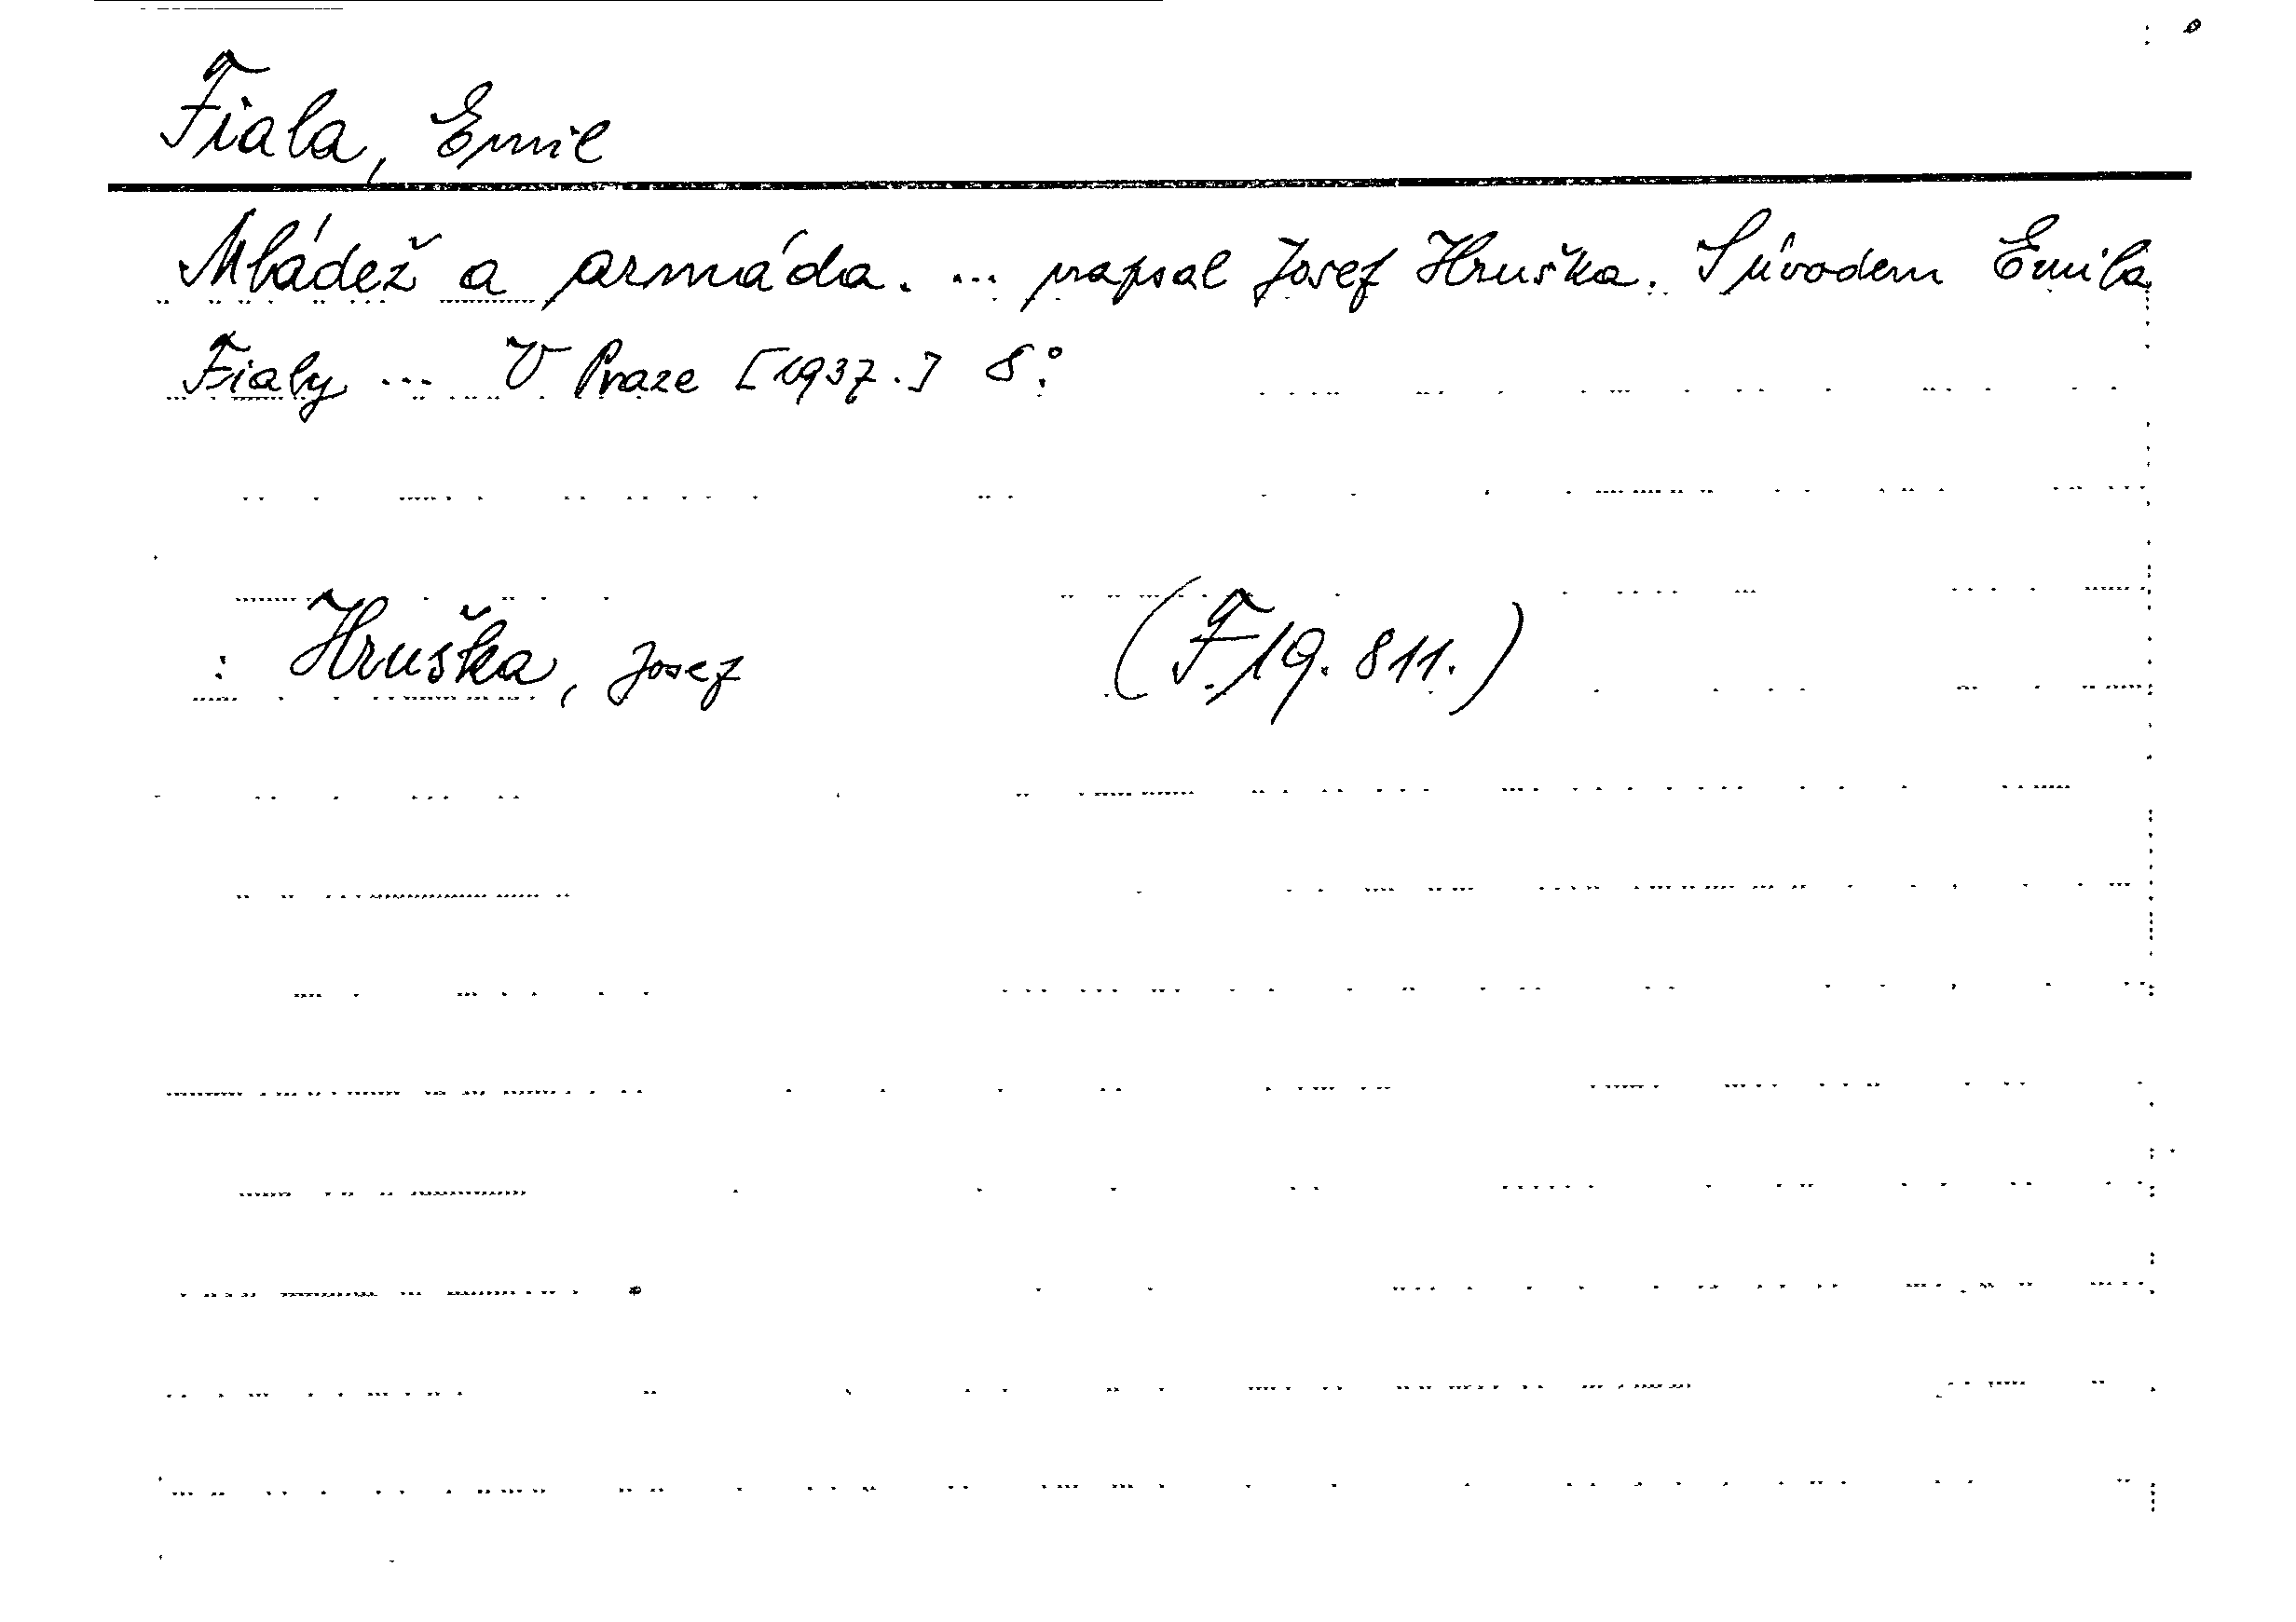 Fiala, Emil
Mládež a armáda. ... napsal Josef Hruška. S úvodem Emila
Fialy ... V Praze [1937.] 8°.
: Hruška, Josef (F. 19. 811.)